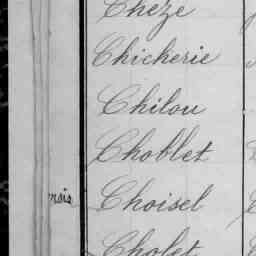 Cheze
Chickerie
Chilou
Choblet
nais Choisel
Cholet